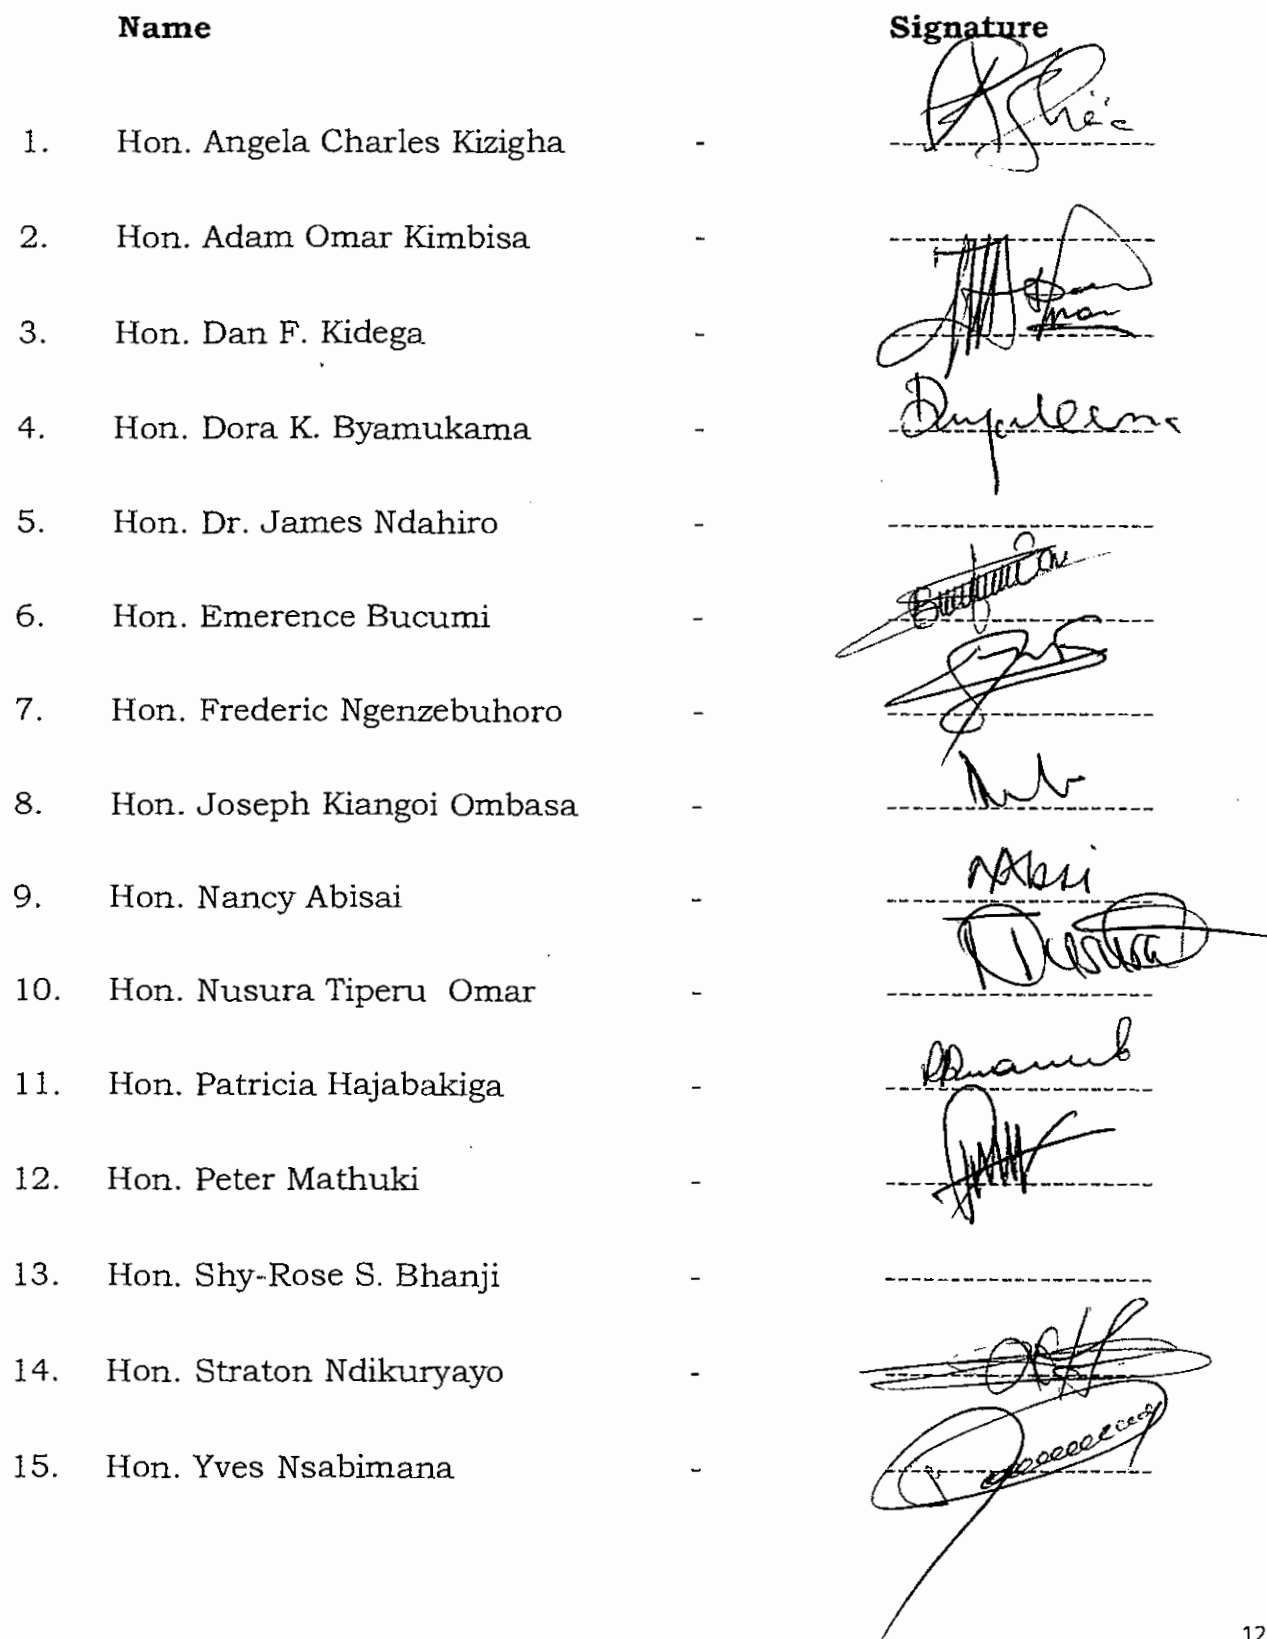 Name Signature
1. Hon. Angela Charles Kizigha -
2. Hon. Adam Omar Kimbisa -
3. Hon. Dan F. Kidega -
4. Hon. Dora K. Byamukama -
5. Hon. Dr. James Ndahiro -
6. Hon. Emerence Bucumi -
7. Hon. Frederic Ngenzebuhoro -
8. Hon. Joseph Kiangoi Ombasa -
9. Hon. Nancy Abisai -
10. Hon. Nusura Tiperu Omar -
11. Hon. Patricia Hajabakiga -
12. Hon. Peter Mathuki -
13. Hon. Shy-Rose S. Bhanji -
14. Hon. Straton Ndikuryayo -
15. Hon. Yves Nsabimana -
12